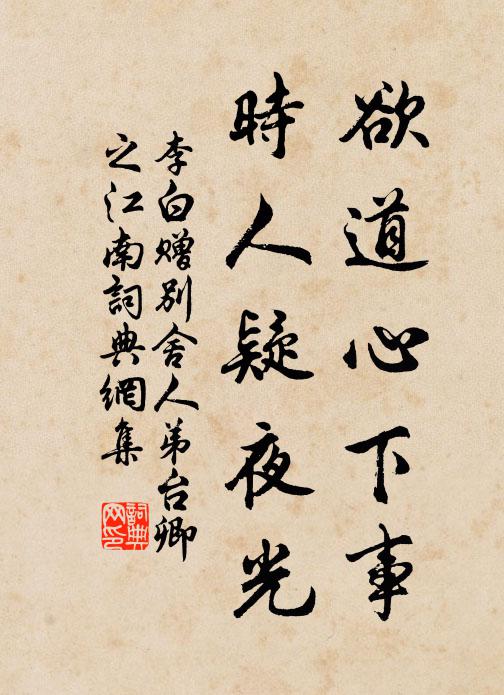 欲道心下事
時人疑夜光
李白赠别舍人弟台卿
之江南詞典網集
詞典
网印